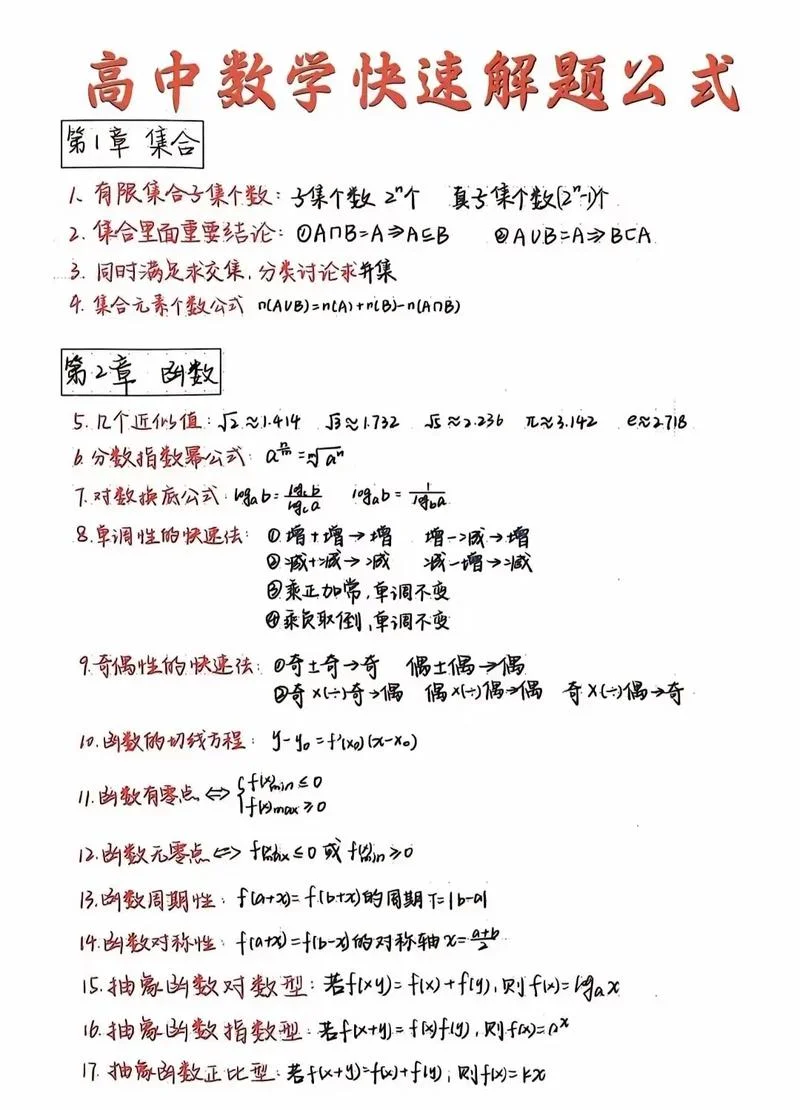 高中数学快速解题公式
第1章 集合
1、有限集合子集个数：子集个数 2ⁿ个 真子集个数(2ⁿ-1)个
2. 集合里面重要结论：①A∩B=A⇒A⊆B ②A∪B=A⇒B⊂A
3. 同时满足求交集，分类讨论求并集
4. 集合元素个数公式 n(A∪B)=n(A)+n(B)-n(A∩B)
第2章 函数
5. 几个近似值：√2≈1.414 √3≈1.732 √5≈2.236 π≈3.142 e≈2.718
6. 分数指数幂公式：a^(n/m)=ᵐ√aⁿ
7. 对数换底公式：logₐb=log_c b/log_c a logₐb=1/log_b a
8. 单调性的快速法：①增+增→增 增-减→增
②减+减→减 减-增→减
③乘正加常，单调不变
④乘负取倒，单调不变
9. 奇偶性的快速法：①奇±奇→奇 偶±偶→偶
②奇×(÷)奇→偶 偶×(÷)偶→偶 奇×(÷)偶→奇
10. 函数的切线方程：y-y₀=f'(x₀)(x-x₀)
11. 函数有零点⇔{f(x)min≤0
f(x)max≥0
12. 函数无零点⇔f(x)max≤0或f(x)min≥0
13. 函数周期性：f(a+x)=f(b+x)的周期T=|b-a|
14. 函数对称性：f(a+x)=f(b-x)的对称轴x=(a+b)/2
15. 抽象函数对数型：若f(xy)=f(x)+f(y)，则f(x)=logₐx
16. 抽象函数指数型：若f(x+y)=f(x)f(y)，则f(x)=aˣ
17. 抽象函数正比型：若f(x+y)=f(x)+f(y)，则f(x)=kx